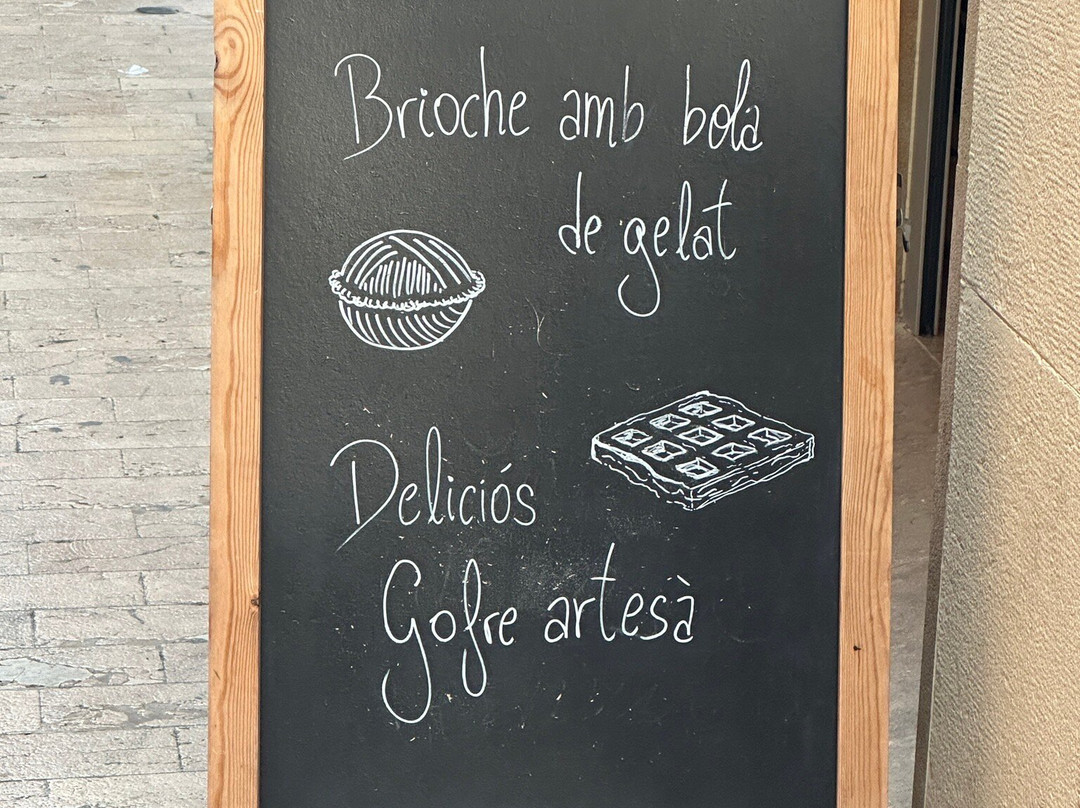 Brioche amb bola
de gelat
Deliciós
Gofre artesà